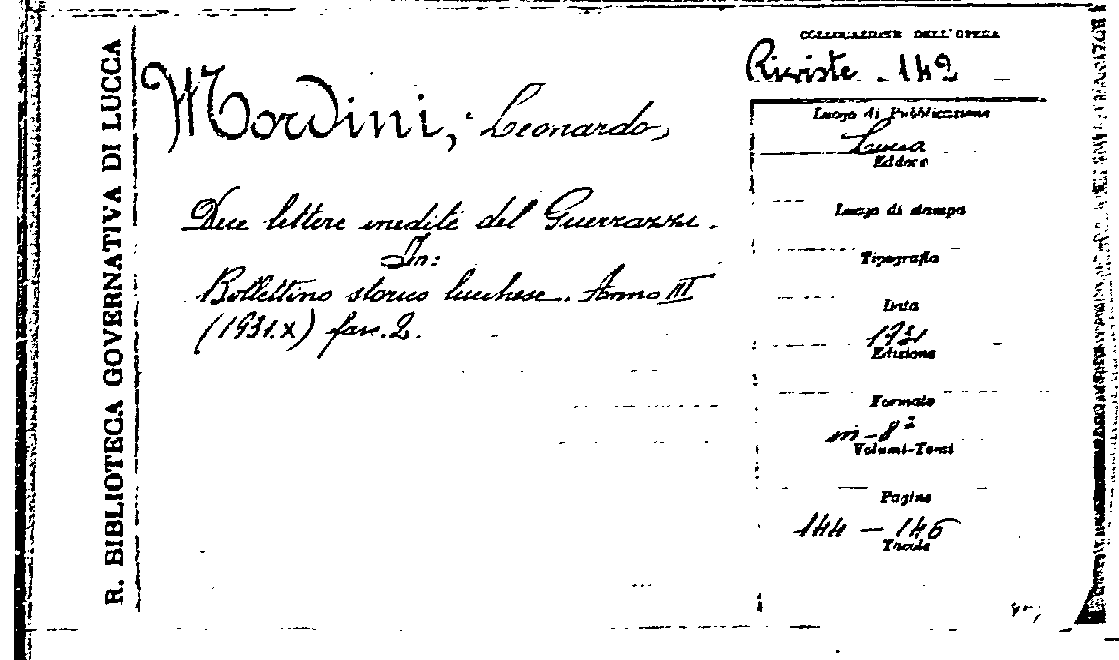 R. BIBLIOTECA GOVERNATIVA DI LUCCA
Mordini, Leonardo,
Due lettere inedite del Guerrazzi.
In:
Bollettino storico lucchese. Anno III
(1931.X) fasc. 2.
COLLOCAZIONE DELL'OPERA
Riviste - 142
Luogo di Pubblicazione
Lucca
Editore
Luogo di stampa
Tipografia
Data
1931
Edizione
Formato
in-8º
Volumi-Tomi
Pagine
144 - 146
Tavole